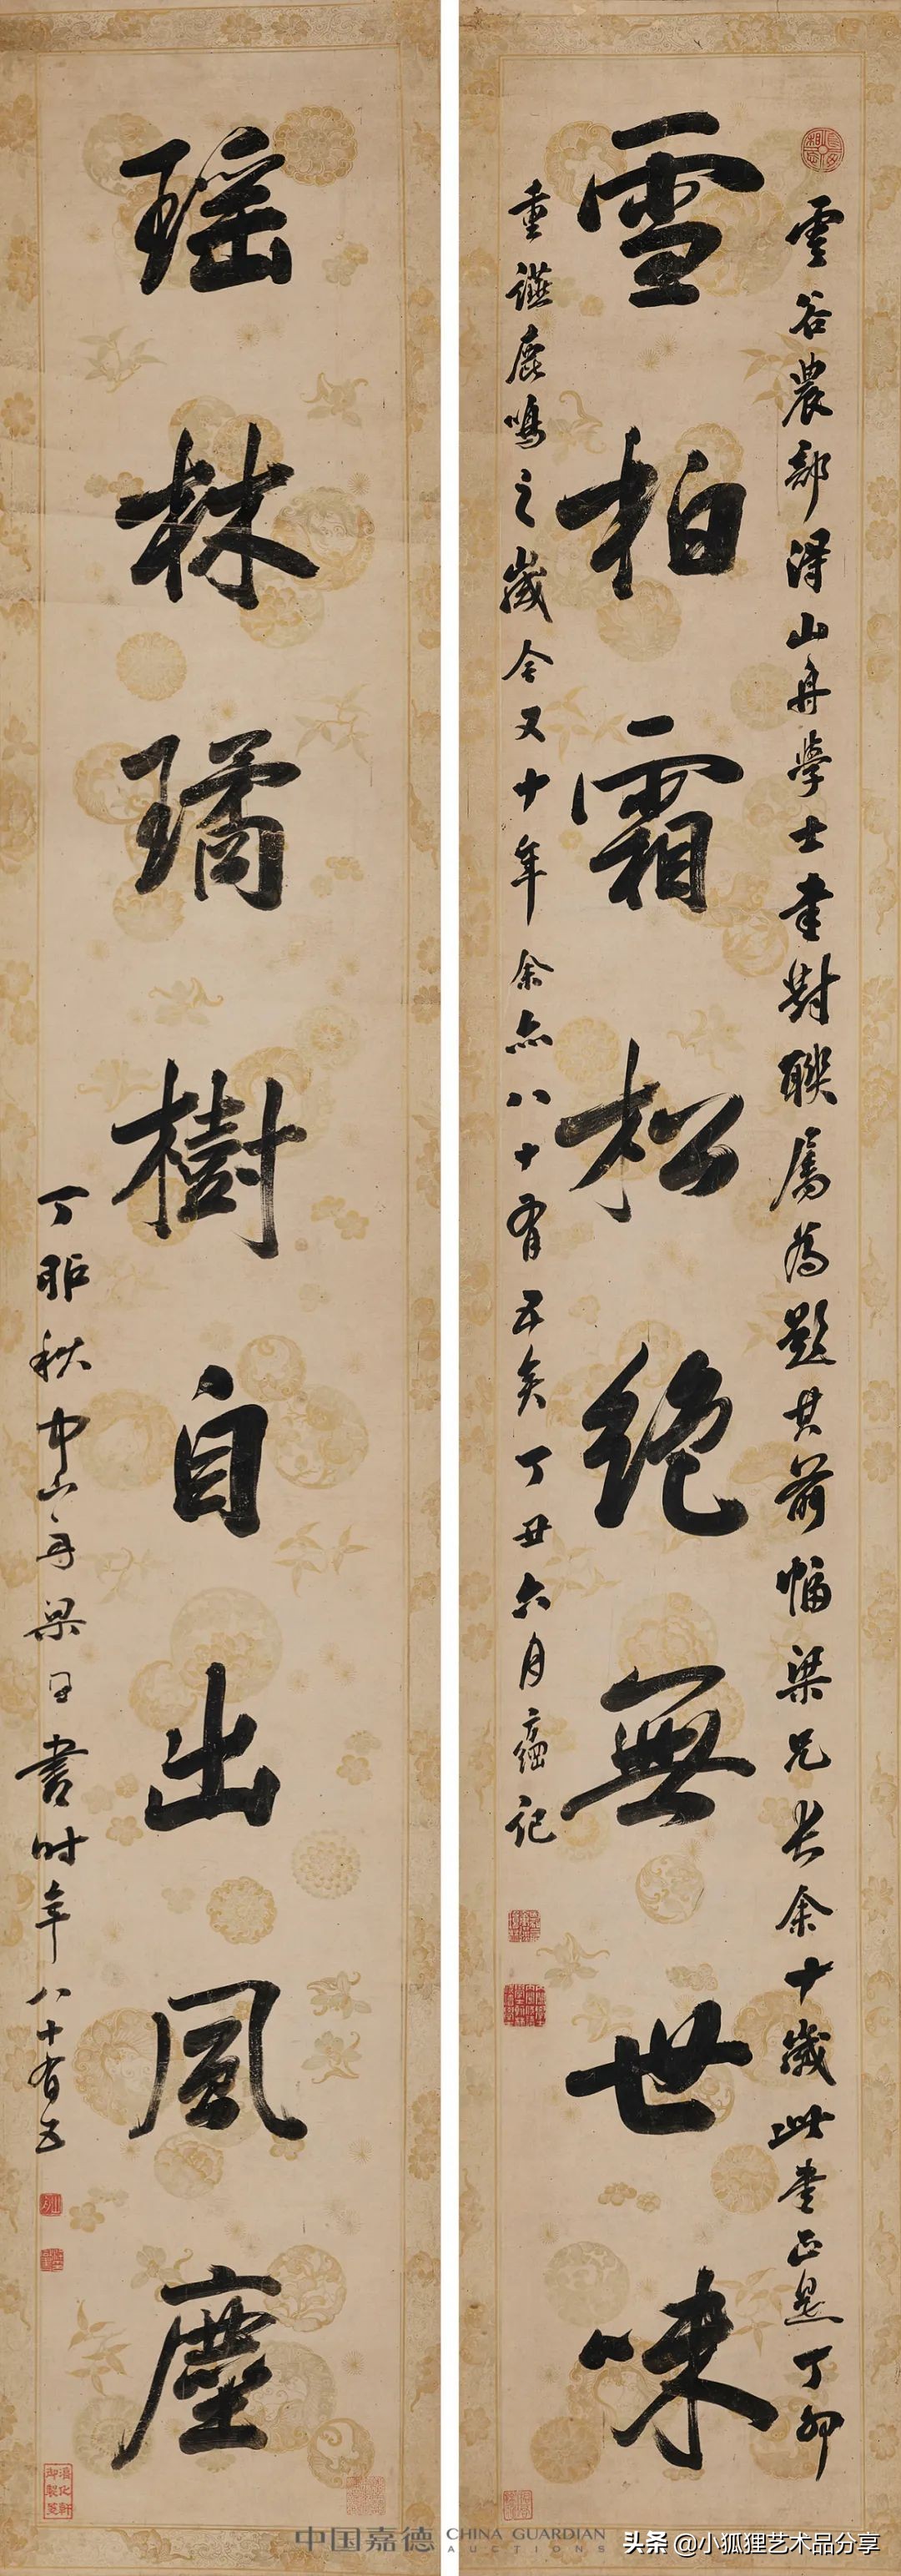 雲谷農部得山舟學士書對聯屬為題其前幅梁兄長余十歲此書正是丁卯
雪柏霜松絶無世味
重讌鹿鳴之歲今又十年余亦八十有五矣丁丑六月方綱記
瑶林璚樹自出風塵
丁卯秋中山舟梁同書時年八十有五
淳化軒御製箋
中国嘉德 CHINA GUARDIAN AUCTIONS
头条 @小狐狸艺术品分享